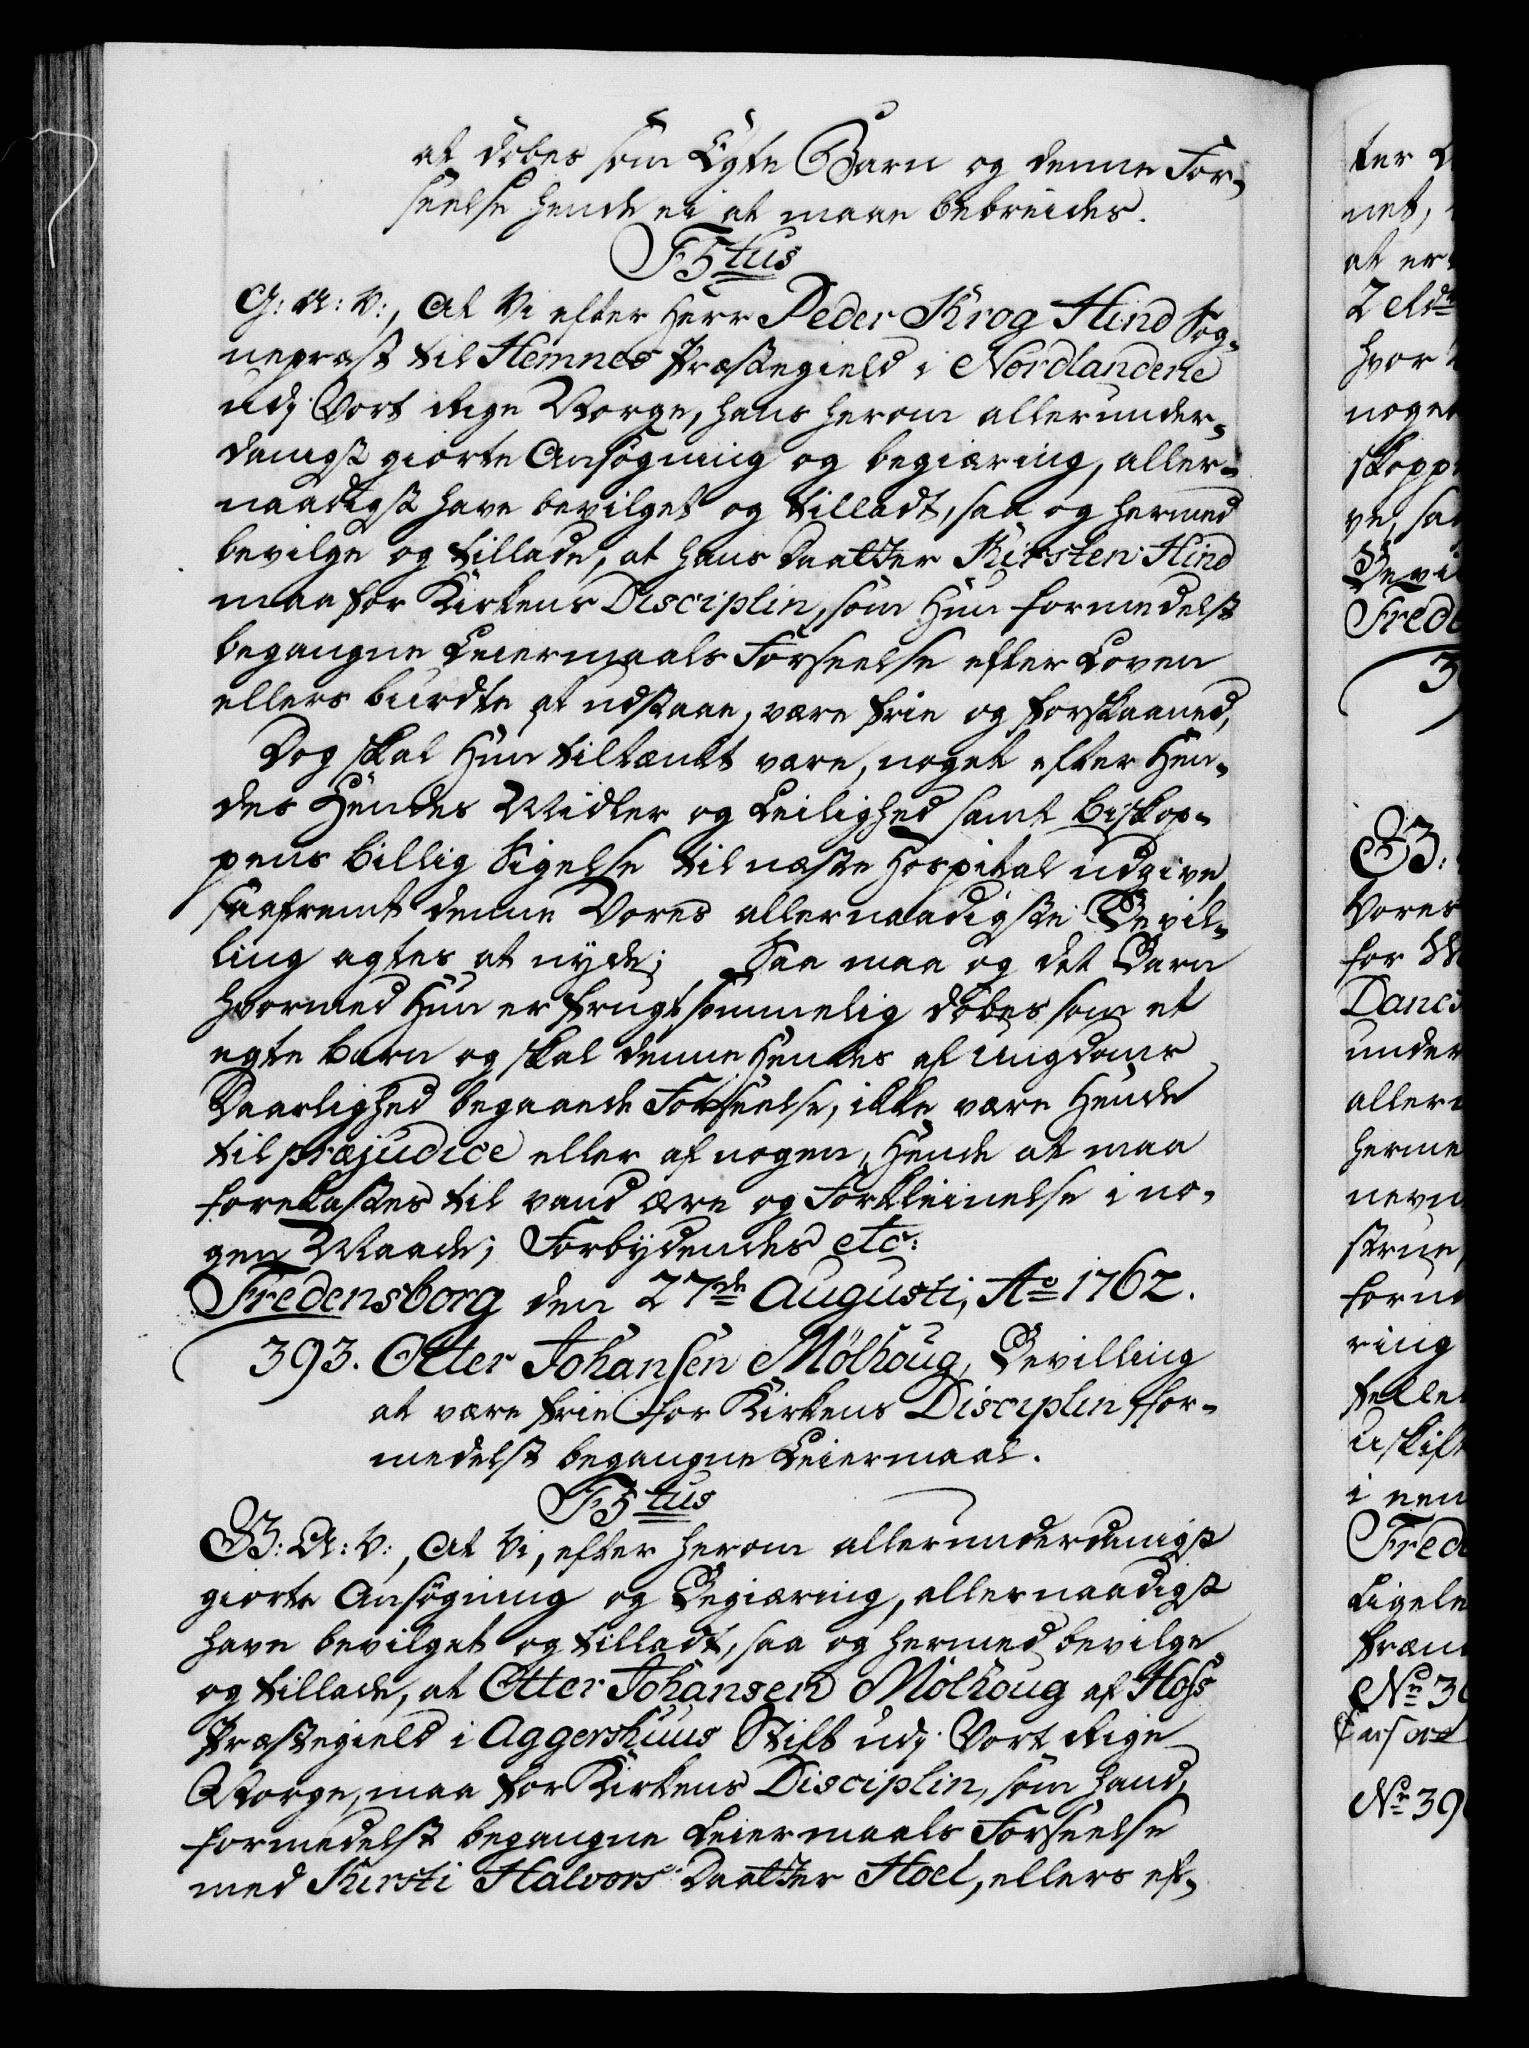 at döbes som Egte Barn og denne For-
seelse hende ei at maae bebreides.
F5tus
G: A: V:, At Vi efter Herr Peder Krog Hind Sog-
nepræst til Hemnes Præstegield i Nordlandene
udj Vort Rige Norge, hans herom allerunder-
danigst giorte Ansögning og begiæring, aller-
naadigst have bevilget og tilladt, saa og hermed
bevilge og tillade, at hans Daatter Kirsten Hind
maa for Kirkens Disciplin, som Hun formedelst
begangne Leiermaals Forseelse efter Loven
ellers burdte at udstaae, være frie og forskaaned,
Dog skal Hun tiltænkt være, noget efter Hen-
des Hendes Midler og Leilighed samt Biskop-
pens billig Sigelse til næste Hospital udgive,
saafremt denne Vores allernaadigste Bevil-
ling agtes at nyde; Saa maa og det Barn
hvormed Hun er frugtsommelig döbes som et
egte barn og skal denne Hendes af Ungdoms
Daarlighed begaaede Forseelse, ikke være Hende
til præjudice eller af nogen, Hende at maa
forekastes til vand ære og Forkleinelse i no-
gen Maade; Forbydendes etc:
Fredensborg den 27de Augusti, Ao 1762.
393. Otter Johansen Mölhoug, Bevilling
at være frie for Kirkens Disciplin for-
medelst begangne Leiermaal.
F5tus
G: A: V:, At Vi, efter herom allerunderdanigst
giorte Ansögning og Begiæring, allernaadigst
have bevilget og tilladt, saa og hermed bevilge
og tillade, at Otter Johansen Mölhoug af Hofs
Præstegield i Aggershuus Stift udj Vort Rige
Norge, maa for Kirkens Disciplin, som hand,
formedelst begangne Leiermaals Forseelse
med Kirsti Halvors Daatter Hoel, ellers ef-